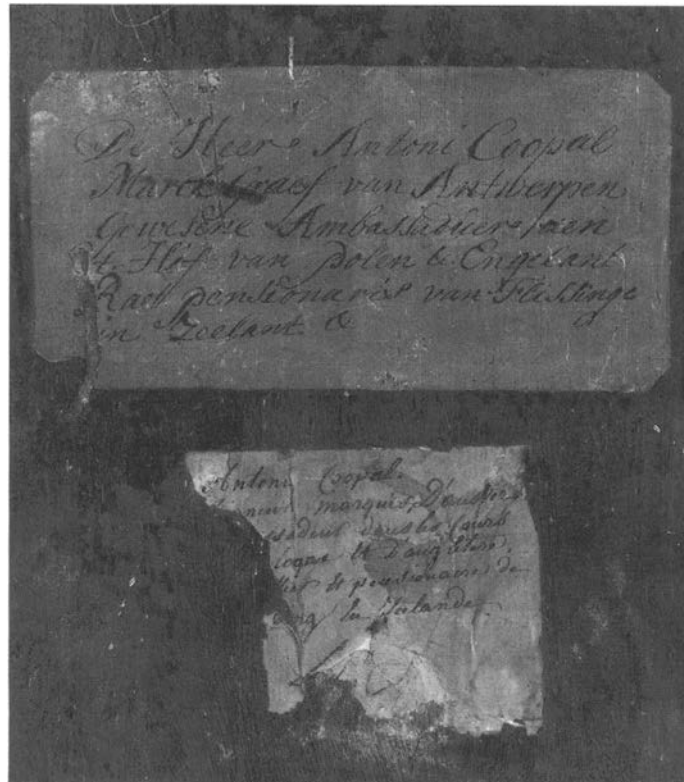 De Heer Antoni Coopal
Marck Graef van Antwerpen
Gewesene Ambassaduer aen
't Hof van Polen & Engelant
Raet pensionaris van Flissinge
in Zeelant &
Antoni Copal.
marquis D'anvers
ssadeur dans les Cours
logne et D'angletere,
et pensionaire de
en Zeelande